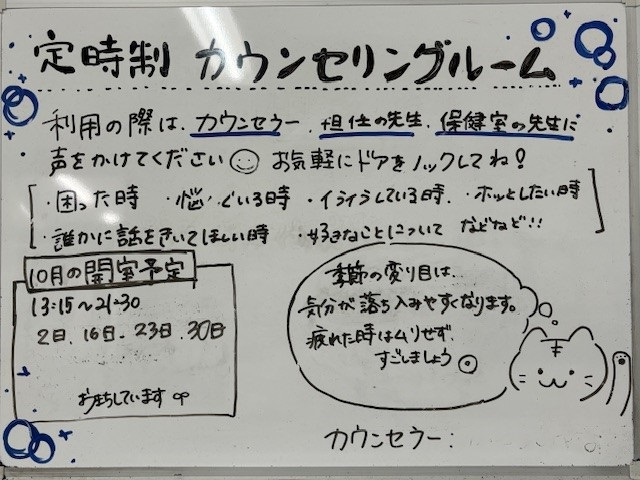 定時制 カウンセリングルーム
利用の際は、カウンセラー、担任の先生、保健室の先生に
声をかけてください お気軽にドアをノックしてね!
・困った時 ・悩んでいる時 ・イライラしている時 ・ホッとしたい時
・誰かに話をきいてほしい時 ・好きなことについて などなど!!
10月の開室予定
13:15~21:30
2日、16日、23日、30日
お待ちしています
季節の変り目は、
気分が落ち込みやすくなります。
疲れた時はムリせず、
すごしましょう
カウンセラー: